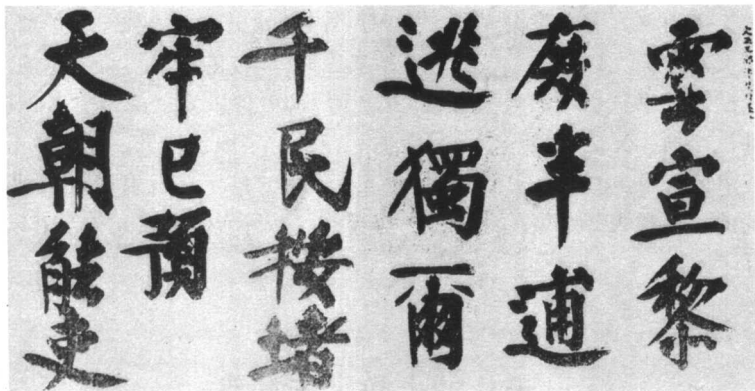 雲宣黎
廢半逋
逃獨爾
千民按堵
宰已預
天朝能吏